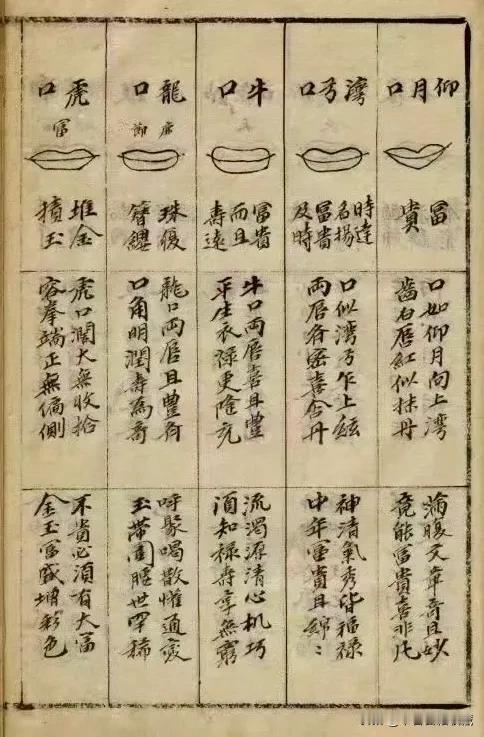 仰月口
富
貴
口如仰月向上灣
齒白唇紅似抹丹
滿腹文章奇且妙
竟能富貴喜非凡
灣弓口
時達
名揚
富貴
及時
口似灣弓乍上絃
兩唇各密喜含丹
神清氣秀皆福禄
中年富貴且綿〻
牛口
富貴
而且
壽遠
牛口兩唇喜且豐
平生衣禄更隆充
流濁源清心机巧
須知禄壽享無窮
龍口
珠履
簪纓
龍口兩唇且豐齊
口角明潤壽爲奇
呼聚喝散權通変
玉帶圍腰世罕稀
虎口
富
堆金
積玉
虎口濶大無收拾
容拳端正無偏側
不貴必須有大富
金玉富盛增彩色